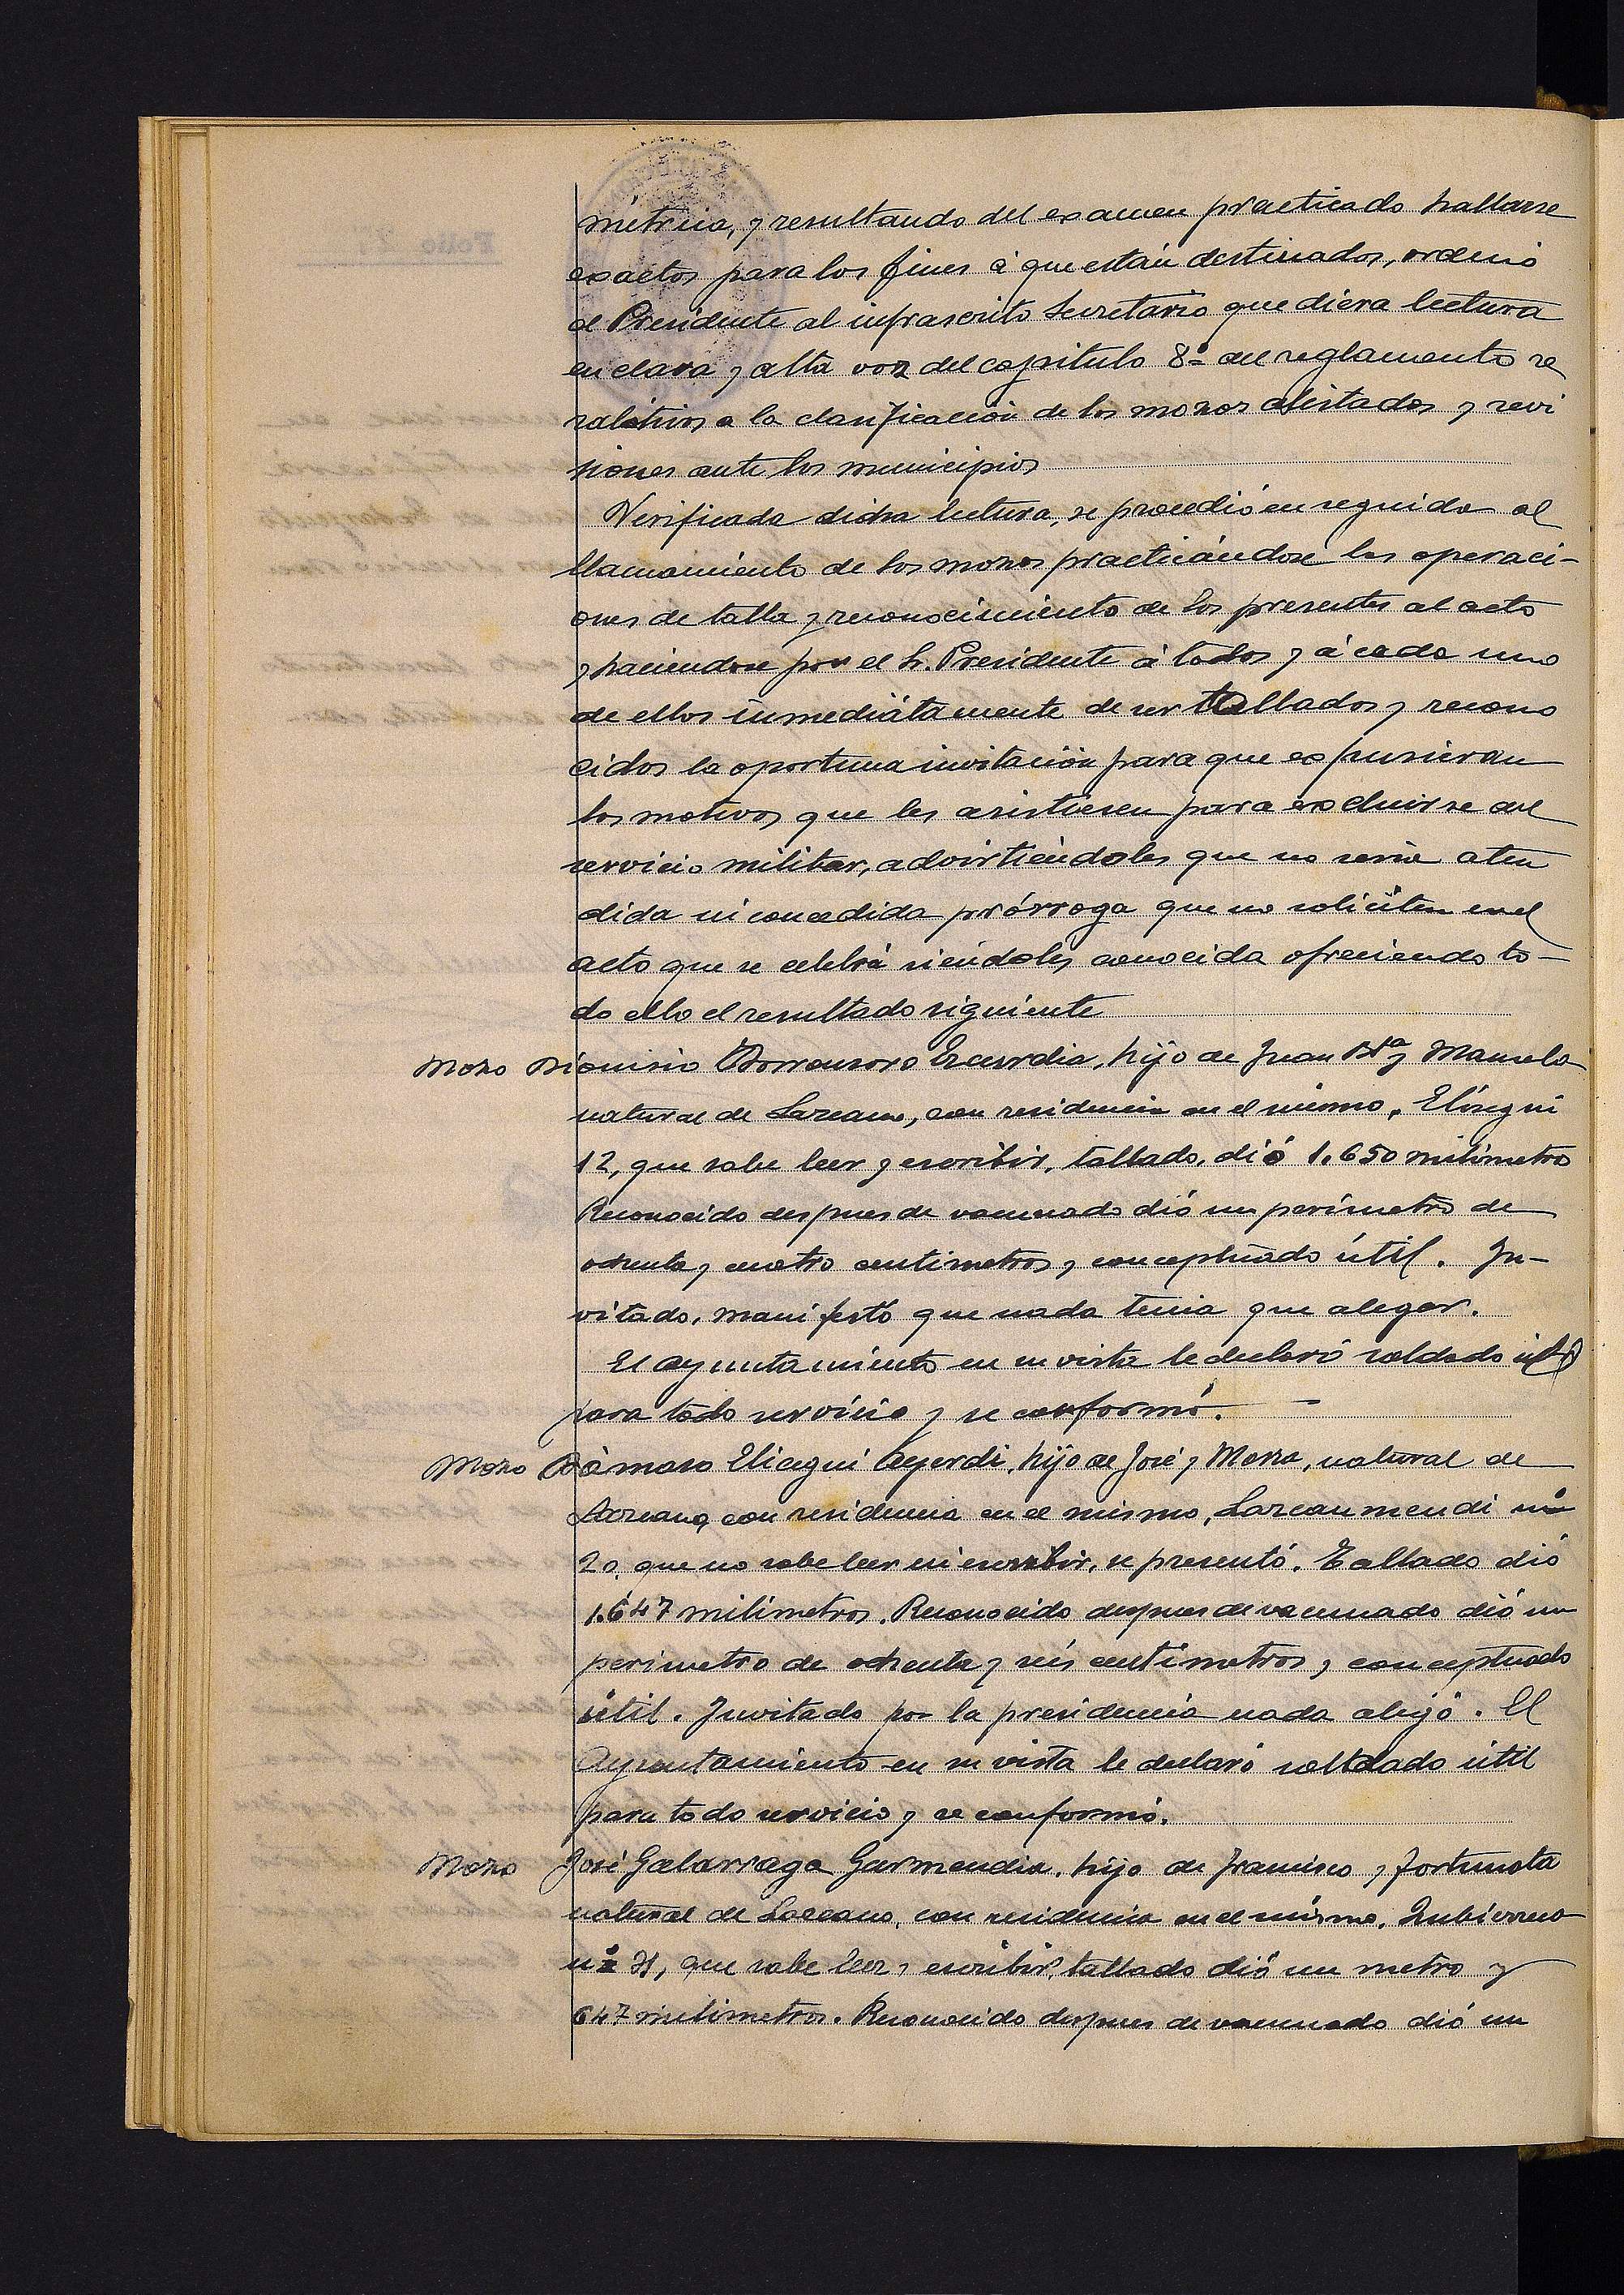 métrica, y resultando del examen practicado hallarse
exactos para los fines á que están destinados, ordenó
el Presidente al infrascrito Secretario que diera lectura
en clara y alta voz del capitulo 8º del reglamento re
ralativos a la clasificación de los mozos alistados y revi
siones ante los municipios
Verificada dicha lectura, se procedió en seguida al
llamamiento de los mozos practicándose las operaci-
ones de talla y reconocimiento de los presentes al acto
y haciendose por el Sr. Presidente á todos y á cada uno
de ellos inmediátamente de ser tallados y recono
cidos la oportuna invitación para que expusieran
los motivos que les asistiesen para excluirse del
servicio militar, advirtiéndoles que no seria aten
dida ni concedida prórroga que no soliciten en el
acto que se celebra siéndoles conocida ofreciendo to-
do ello el resultado siguiente
Mozo Dionisio Dorronsoro Ezcurdia, hijo de Juan Bta y Manuela
natural de Lazcano, con residencia en el mismo, Elósegui
12, que sabe leer y escribir, tallado, dió 1.650 milimetros
Reconocido despues de vacunado dió un perimetro de
ochenta y cuatro centimetros y conceptuado útil. In-
vitado, manifestó que nada tenia que alegar.
El Ayuntamiento en su vista le declaró soldado útil
para todo servicio y se conformó.
Mozo Dámaso Eliegui Ayerdi, hijo de José y María, natural de
Lazcano, con residencia en el mismo, Lazcaumendi nº
20, que no sabe leer ni escribir, se presentó. Tallado dió
1.647 milimetros. Reconocido despues de vacunado dió un
perimetro de ochenta y seis centimetros y conceptuado
útil. Invitado por la presidencia nada alegó. El
Ayuntamiento en su vista le declaró soldado útil
para todo servicio y se conformó.
Mozo José Galarraga Garmendia, hijo de Francisco y Fortunata
natural de Lazcano, con residencia en el mismo, Zubierreco
nº 31, que sabe leer y escribir, tallado dió un metro y
647 milimetros. Reconocido despues de vacunado dió un